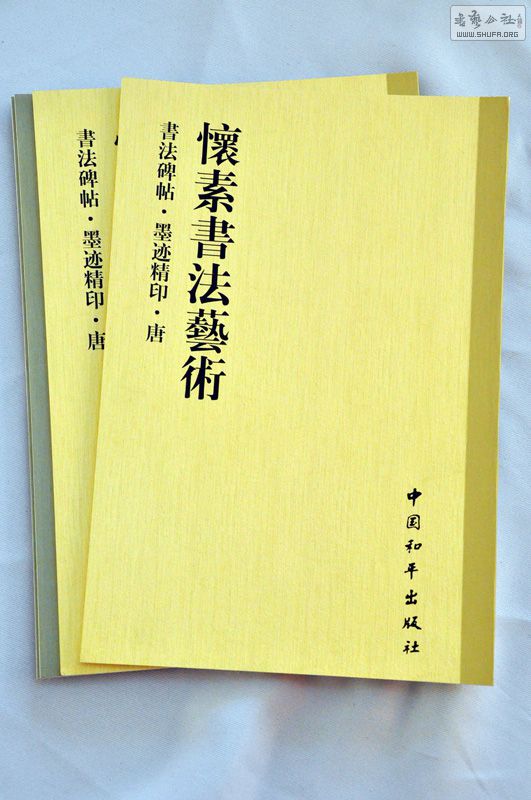 書藝公社
WWW.SHUFA.ORG
懷素書法藝術
書法碑帖·墨迹精印·唐
中国和平出版社
書法碑帖·墨迹精印·唐